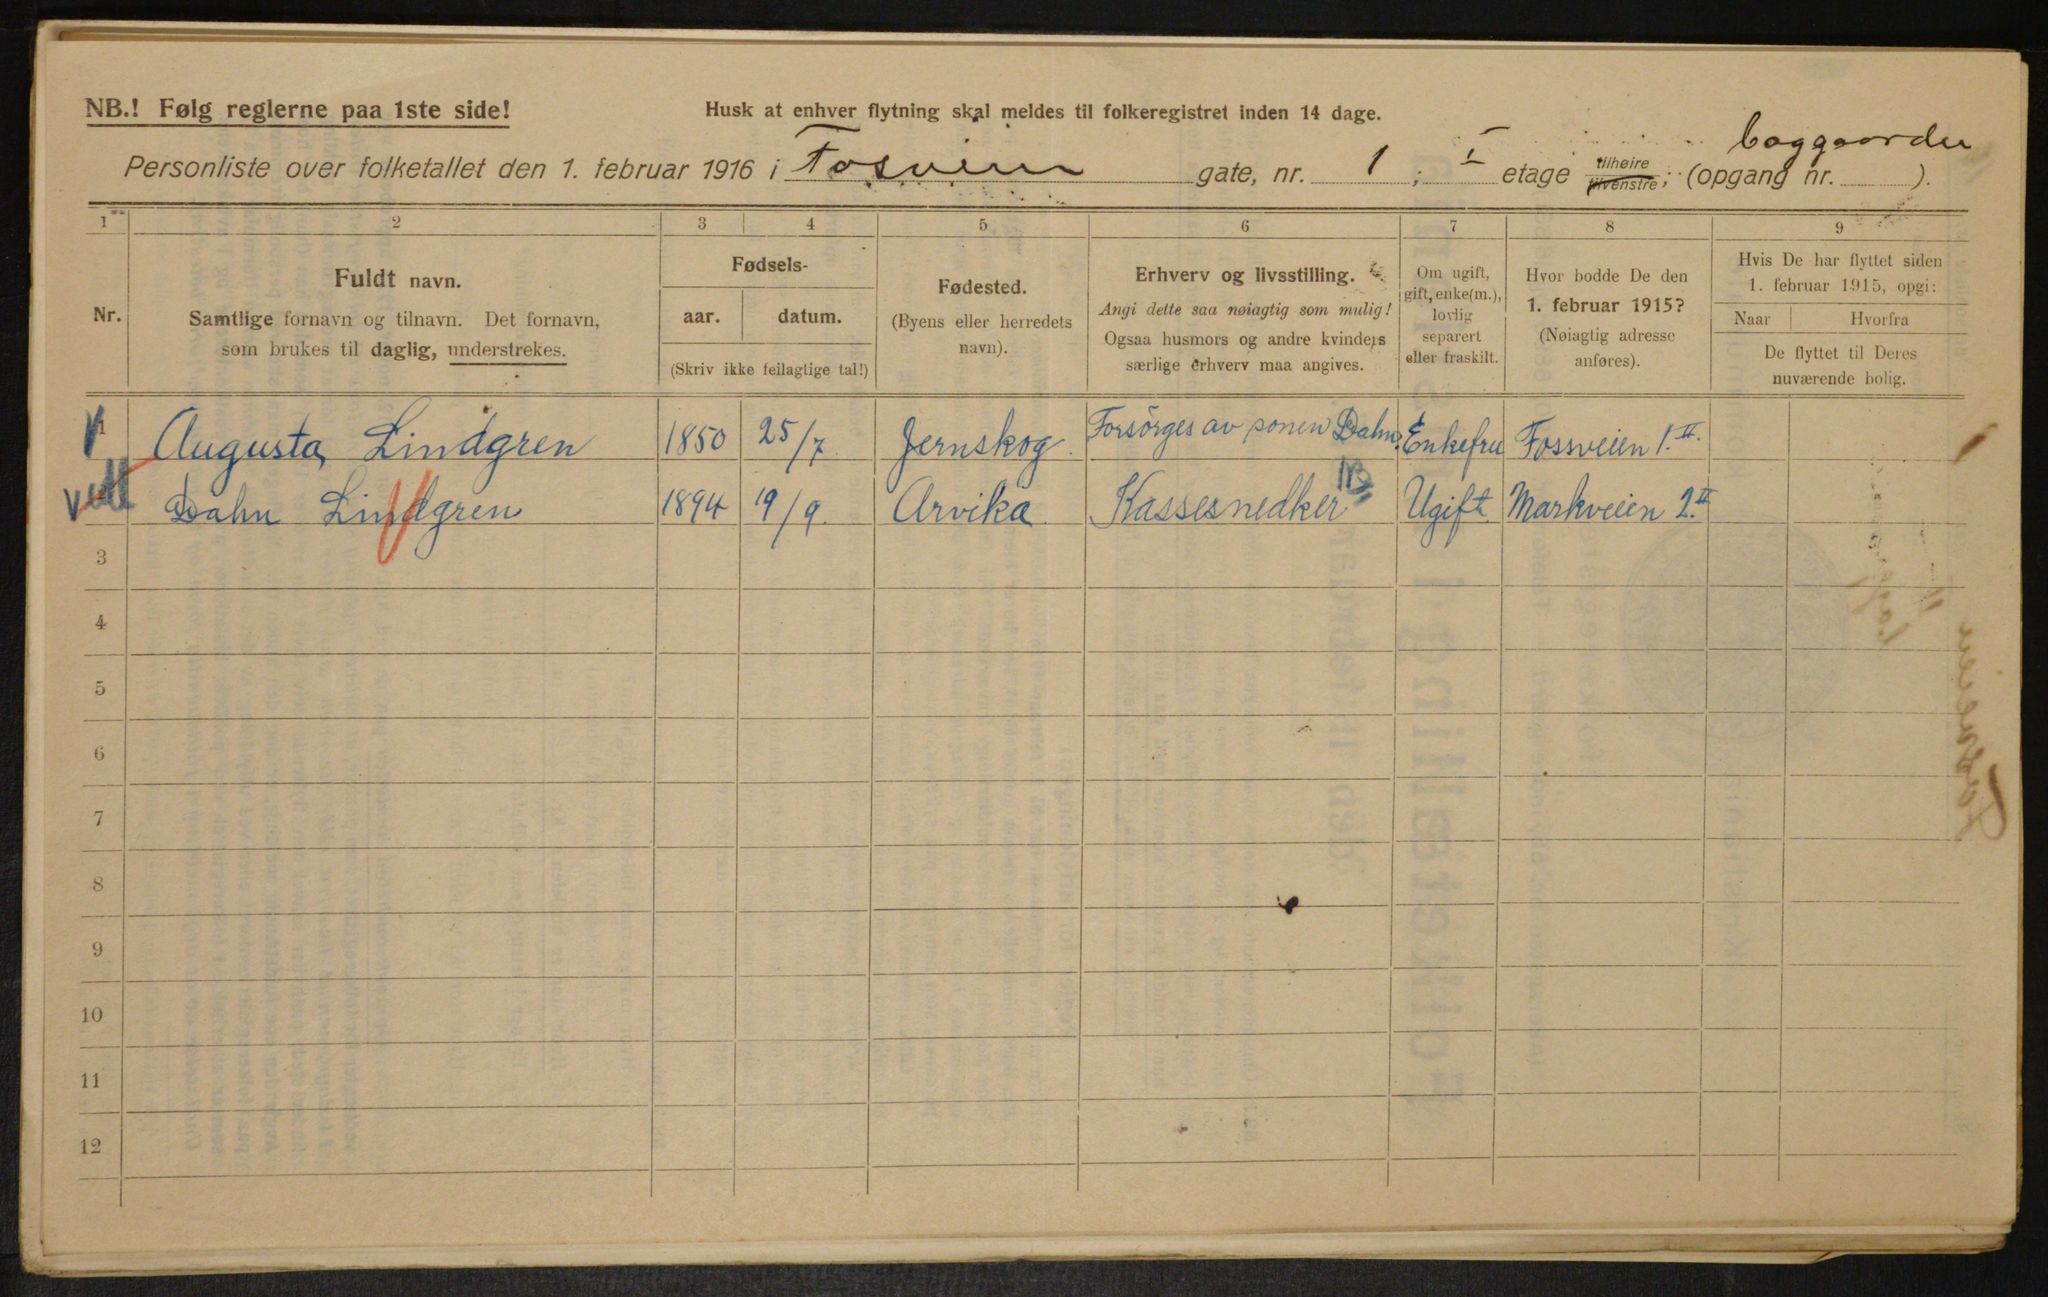 NB.! Følg reglerne paa 1ste side!
Husk at enhver flytning skal meldes til folkeregistret inden 14 dage.
Personliste over folketallet den 1. februar 1916 i Fosveien gate, nr. 1; I etage tilhøire tilvenstre; (opgang nr. baggaarden ).
1 2 3 4 5 6 7 8 9
Nr.
Fuldt navn.
Samtlige fornavn og tilnavn. Det fornavn,
som brukes til daglig, understrekes.
Fødsels-
aar. datum.
(Skriv ikke feilagtige tal!)
Fødested.
(Byens eller herredets
navn).
Erhverv og livsstilling.
Angi dette saa nøiagtig som mulig!
Ogsaa husmors og andre kvinders
særlige erhverv maa angives.
Om ugift,
gift, enke(m.),
lovlig
separert
eller fraskilt.
Hvor bodde De den
1. februar 1915?
(Nøiagtig adresse
anføres).
Hvis De har flyttet siden
1. februar 1915, opgi:
Naar Hvorfra
De flyttet til Deres
nuværende bolig.
1 Augusta Lindgren 1850 25/7 Jernskog Forsörges av sonen Dahn. Enkefru Fossveien 1.II.
Dahn Lindgren 1894 19/9 Arvika Kassesnedker Ugift Markveien 2.II
3
4
5
6
7
8
9
10
11
12